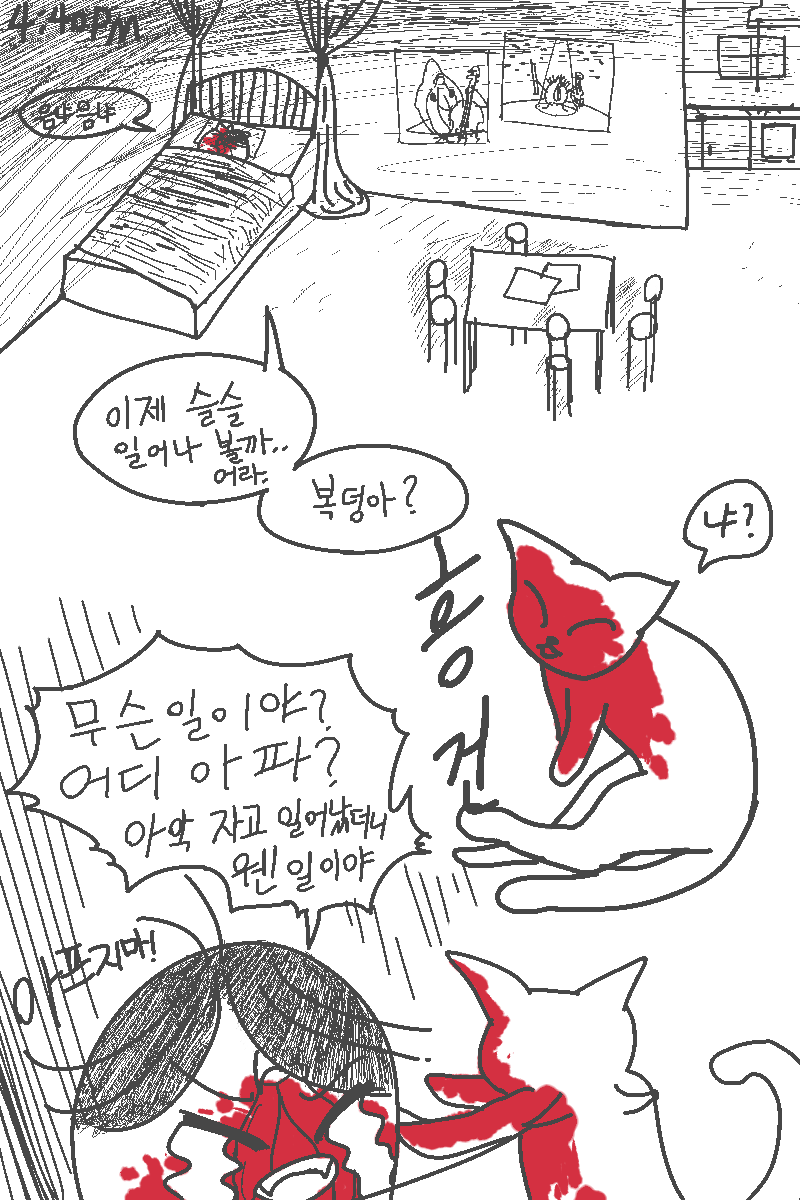 4:40PM
음냐음냐
이제 슬슬
일어나 볼까..
어라.
복덩아?
냐?
흥
건
무슨일이야?
어디 아파?
아악 자고 일어났더니
웬일이야
아프지마!